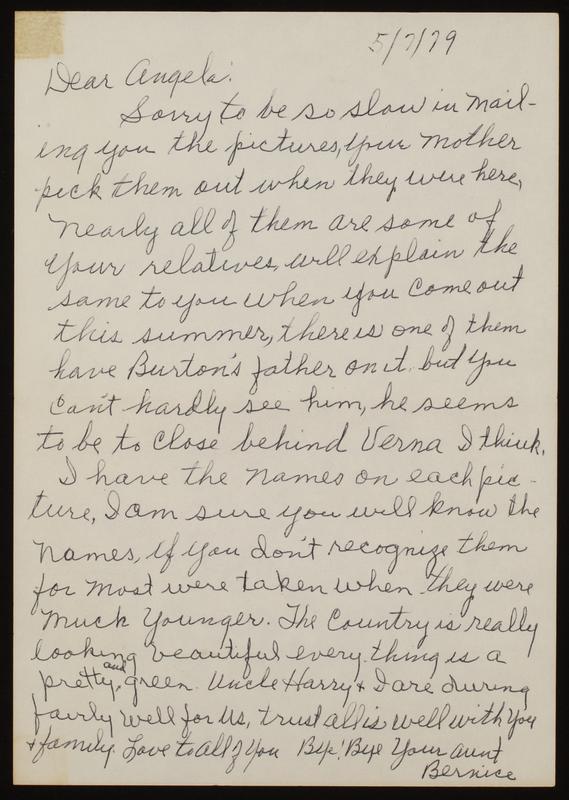 5/7/79
Dear Angela:
Sorry to be so slow in mail-
ing you the pictures, your mother
pick them out when they were here,
nearly all of them are some of
your relatives, will explain the
same to you when you come out
this summer, there is one of them
have Burton's father on it. but you
can't hardly see him, he seems
to be to close behind Verna I think.
I have the names on each pic-
ture, I am sure you will know the
names, if you don't recognize them
for most were taken when they were
much younger. The Country is really
looking beautiful every thing is a
pretty, and green. Uncle Harry & I are during
fairly well for us, trust all is well with you
& family. Love to all of you Bye! Bye Your aunt
Bernice